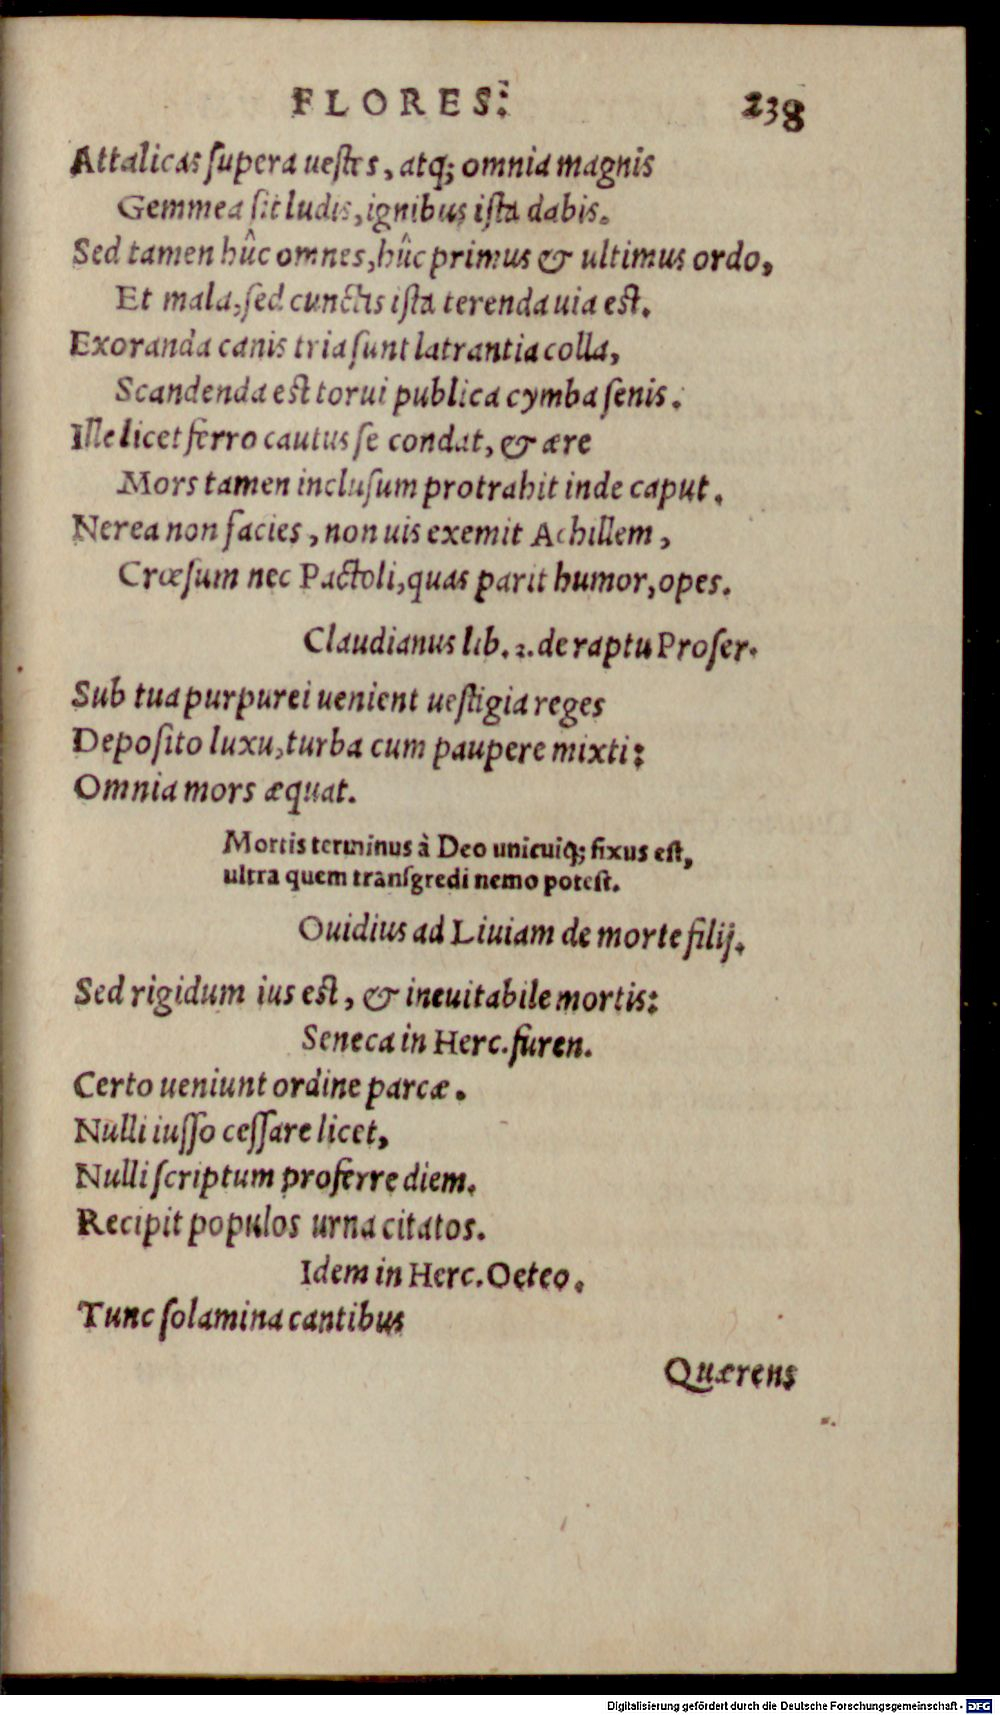 FLORES. 238
Attalicas ſupera ueſtes, atq; omnia magnis
Gemmea ſit ludis, ignibus iſta dabis.
Sed tamen hûc omnes, hûc primus & ultimus ordo,
Et mala, ſed cunctis iſta terenda uia eſt.
Exoranda canis tria ſunt latrantia colla,
Scandenda eſt torui publica cymba ſenis.
Ille licet ferro cautus ſe condat, & ære
Mors tamen incluſum protrahit inde caput.
Nerea non facies, non uis exemit Achillem,
Crœſum nec Pactoli, quas parit humor, opes.
Claudianus lib. 2. de raptu Proſer.
Sub tua purpurei uenient ueſtigia reges
Depoſito luxu, turba cum paupere mixti:
Omnia mors æquat.
Mortis terminus à Deo unicuiq; fixus eſt,
ultra quem tranſgredi nemo poteſt.
Ouidius ad Liuiam de morte filij.
Sed rigidum ius eſt, & ineuitabile mortis:
Seneca in Herc. furen.
Certo ueniunt ordine parcæ.
Nulli iuſſo ceſſare licet,
Nulli ſcriptum proferre diem.
Recipit populos urna citatos.
Idem in Herc. Oeteo.
Tunc ſolamina cantibus
Quærens
Digitalisierung gefördert durch die Deutsche Forschungsgemeinschaft - DFG